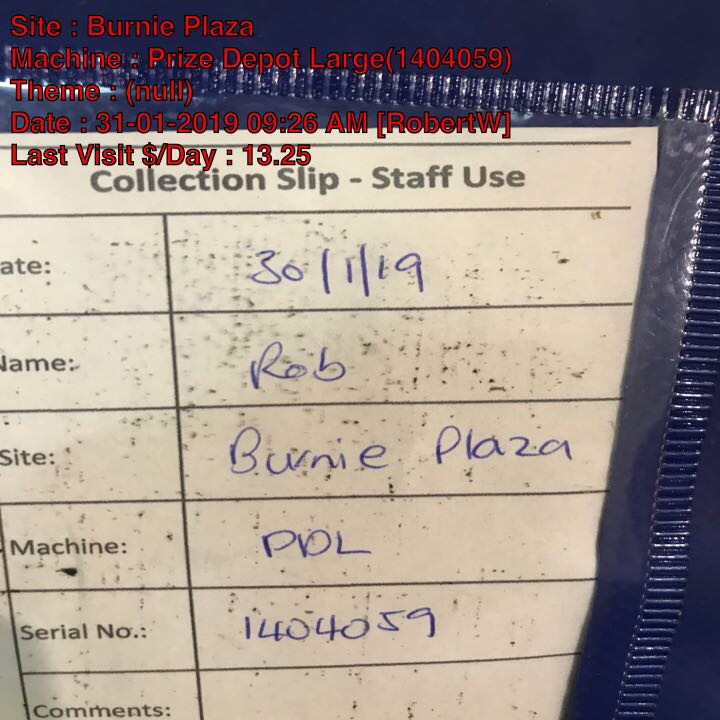 Site : Burnie Plaza
Machine : Prize Depot Large(1404059)
Theme : (null)
Date : 31-01-2019 09:26 AM [RobertW]
Last Visit $/Day : 13.25
Collection Slip - Staff Use
ate: 30/1/19
Name: Rob
Site: Burnie Plaza
Machine: PDL
Serial No.: 1404059
Comments: